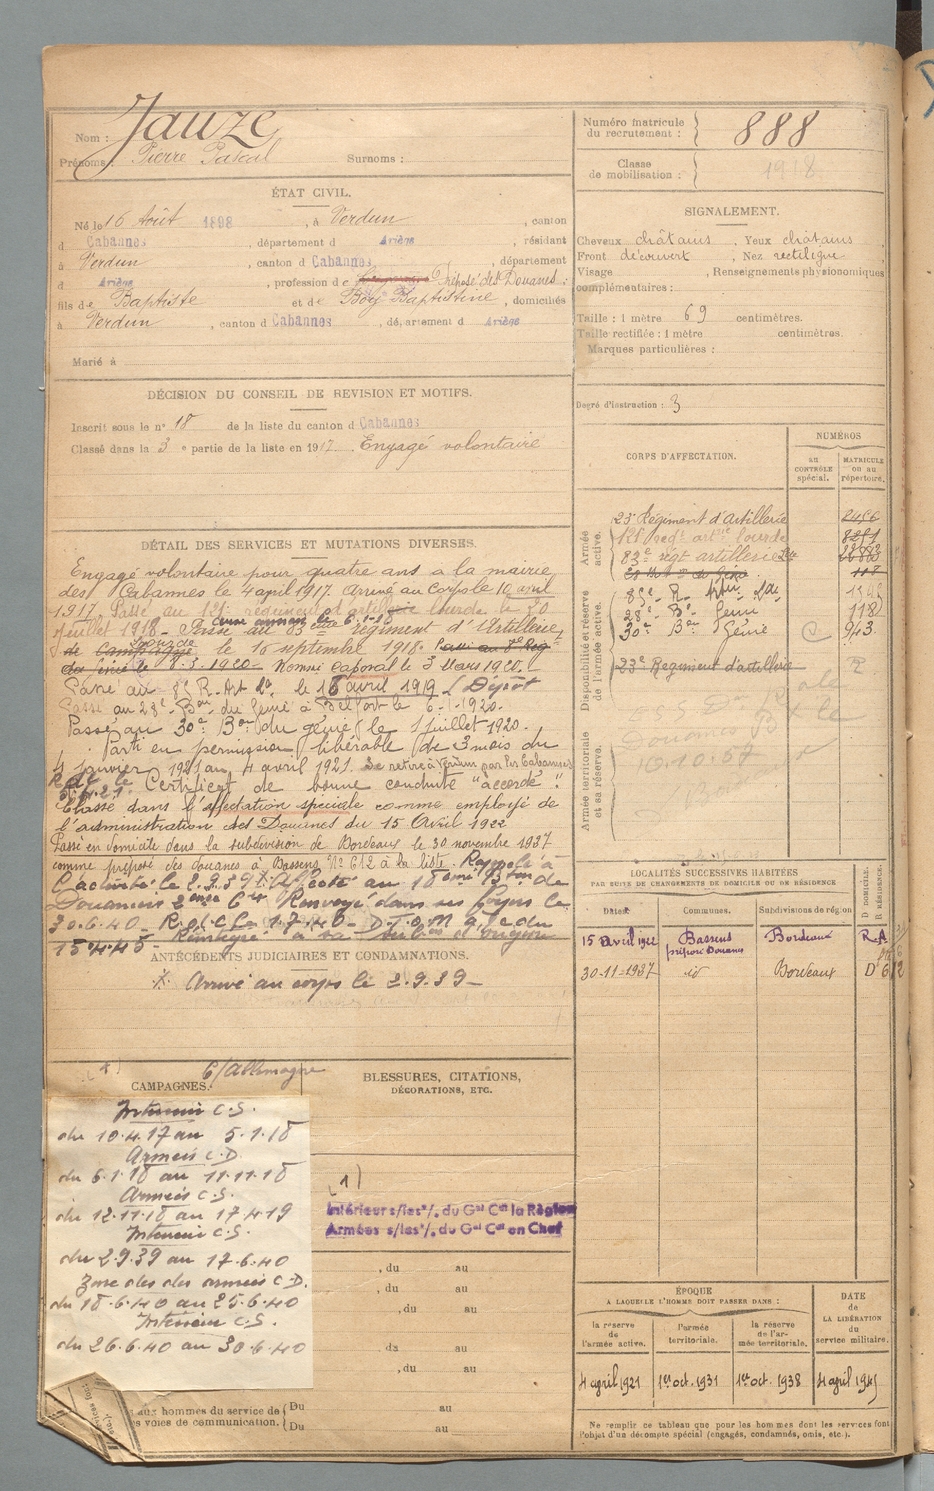 Nom : Jauze
Prénoms : Pierre Pascal Surnoms :
Numéro matricule du recrutement : 888
Classe de mobilisation : 1918
ÉTAT CIVIL.
Né le 16 Août 1898, à Verdun, canton
d Cabannes, département d Ariège, résidant
à Verdun, canton d Cabannes, département
d Ariège, profession de Préposé des Douanes ;
fils de Baptiste et de Bory Baptistine, domiciliés
à Verdun, canton d Cabannes, département d Ariège
Marié à
DÉCISION DU CONSEIL DE REVISION ET MOTIFS.
Inscrit sous le n° 18 de la liste du canton d Cabannes
Classé dans la 3e partie de la liste en 1917. Engagé volontaire
DÉTAIL DES SERVICES ET MUTATIONS DIVERSES.
Engagé volontaire pour quatre ans a la mairie
des Cabannes le 4 avril 1917. Arrivé au Corps le 10 avril
1917. Passé au 121e régiment d'artillerie lourde le 20
juillet 1918 - Passé au 83ème régiment d'Artillerie
lourde le 16 septembre 1918. Passé au 8e Reg
du Génie le 8.3.1920 Nommé caporal le 3 Mars 1920.
Passé au 85 R. Art Lde le 16 avril 1919 (Dépôt
Passé au 28e Bon du Génie à Belfort le 6-1-1920.
Passé au 30e Bon du génie le 1 juillet 1920.
Parti en permission libérable de 3 mois du
4 janvier 1921 au 4 avril 1921. Se retire à Verdun par les Cabannes
Certificat de bonne conduite "accordé".
Classé dans l'affectation spéciale comme employé de
l'administration des Douanes du 15 Avril 1922
Passé en domicile dans la subdivision de Bordeaux le 30 novembre 1937
comme préposé des douanes à Bassens N° 612 à la liste. Rappelé à
l'activité le 2.9.39 Affecté au 18ème Bton de
Douaniers 2ème Cie Renvoyé dans ses foyers le
30.6.40 - R.d.l.C. le 1.7.40 -
15.4.45 -
ANTÉCÉDENTS JUDICIAIRES ET CONDAMNATIONS.
* Arrivé au corps le 2.9.39 -
C/Allemagne
CAMPAGNES.
Intérieur C.S.
du 10.4.17 au 5.1.18
Armées C.D.
du 6.1.18 au 11.11.18
Armées C.S.
du 12.11.18 au 17.4.19
Intérieur C.S.
du 2.9.39 au 17.6.40
Zone des des armées C.D.
du 18.6.40 au 25.6.40
Intérieur C.S.
du 26.6.40 au 30.6.40
BLESSURES, CITATIONS,
DÉCORATIONS, ETC.
(1)
Intérieur s/les °/. du Gal Ct la Région
Armées s/les °/. du Gal Ct en Chef
, du au
, du au
, du au
, du au
, du au
aux hommes du service de
es voies de communication.
Du au
Du au
SIGNALEMENT.
Cheveux châtains, Yeux châtains
Front découvert, Nez rectiligne
Visage , Renseignements physionomiques
complémentaires :
Taille : 1 mètre 69 centimètres.
Taille rectifiée : 1 mètre centimètres.
Marques particulières :
Degré d'instruction : 3
CORPS D'AFFECTATION.
NUMÉROS
AU CONTRÔLE spécial.
MATRICULE ou au répertoire.
Armée active.
23e Régiment d'artillerie 2456
121e régt artie lourde
83e régt artillerie Lde
Disponibilité et réserve de l'armée active.
85e R. Artie Lde
28e Bon Génie 118
30e Bon Génie C 943
23e Régiment d'artillerie R
Armée territoriale et sa réserve.
Douanes
10.10.57
LOCALITÉS SUCCESSIVES HABITÉES
PAR SUITE DE CHANGEMENTS DE DOMICILE OU DE RÉSIDENCE.
D DOMICILE. R RÉSIDENCE.
Dates Communes. Subdivisions de région
15 avril 1922 Bassens préposé Douanes Bordeaux R.A
30-11-1937 id Bordeaux D 612
ÉPOQUE
A LAQUELLE L'HOMME DOIT PASSER DANS :
la réserve de l'armée active.
l'armée territoriale.
la réserve de l'armée territoriale.
DATE DE LA LIBÉRATION du service militaire.
4 april 1921 1er oct. 1931 1er oct. 1938 4 april 1945
Ne remplir ce tableau que pour les hommes dont les services font
l'objet d'un décompte spécial (engagés, condamnés, omis, etc.).